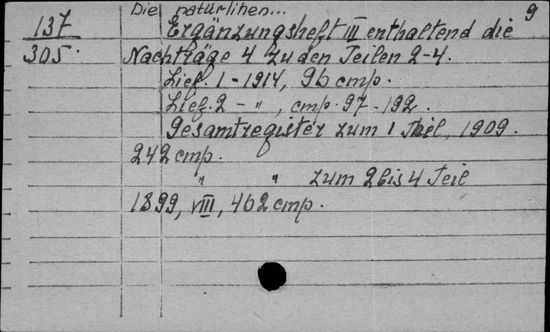 Die natürlihen... 9
137 Ergänzungsheft III enthaltend die
305. Nachträge 4 zu den Teilen 2-4.
Lief. 1 - 1914, 96 cmp.
Lief. 2 - ", cmp. 97-192.
Gesamtregister zum 1 Teil, 1909.
242 cmp.
" " zum 2 bis 4 Teil
1899, VIII, 462 cmp.